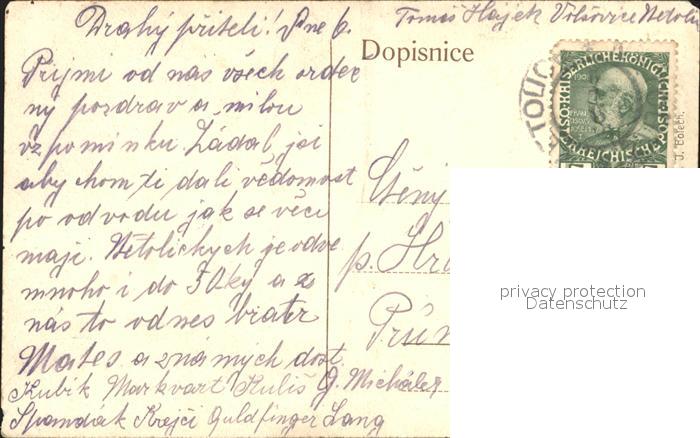 Drahý příteli! Dne 6.
Tomáš Hajek Volšovice Netolic
Dopisnice
Prijmi od nas všech srdeč
ny pozdrav a milou
vzpomínku. Žádal jsi
aby chom ti dali vědomost
po odvodu jak se věci
mají. Netolickych je odve
mnoho i do 30ky a z
nás to odnes bratr
Mates a známých dost
Kubik Markvart Kuliš J. Michálek
Spandák Krejči Guldfinger Lang
Ctěný
p.
TOLIC
KAISERLICHE KÖNIGLICHE ÖST
ERREICHISCHE POST
1908
J. Bolech.
privacy protection
Datenschutz